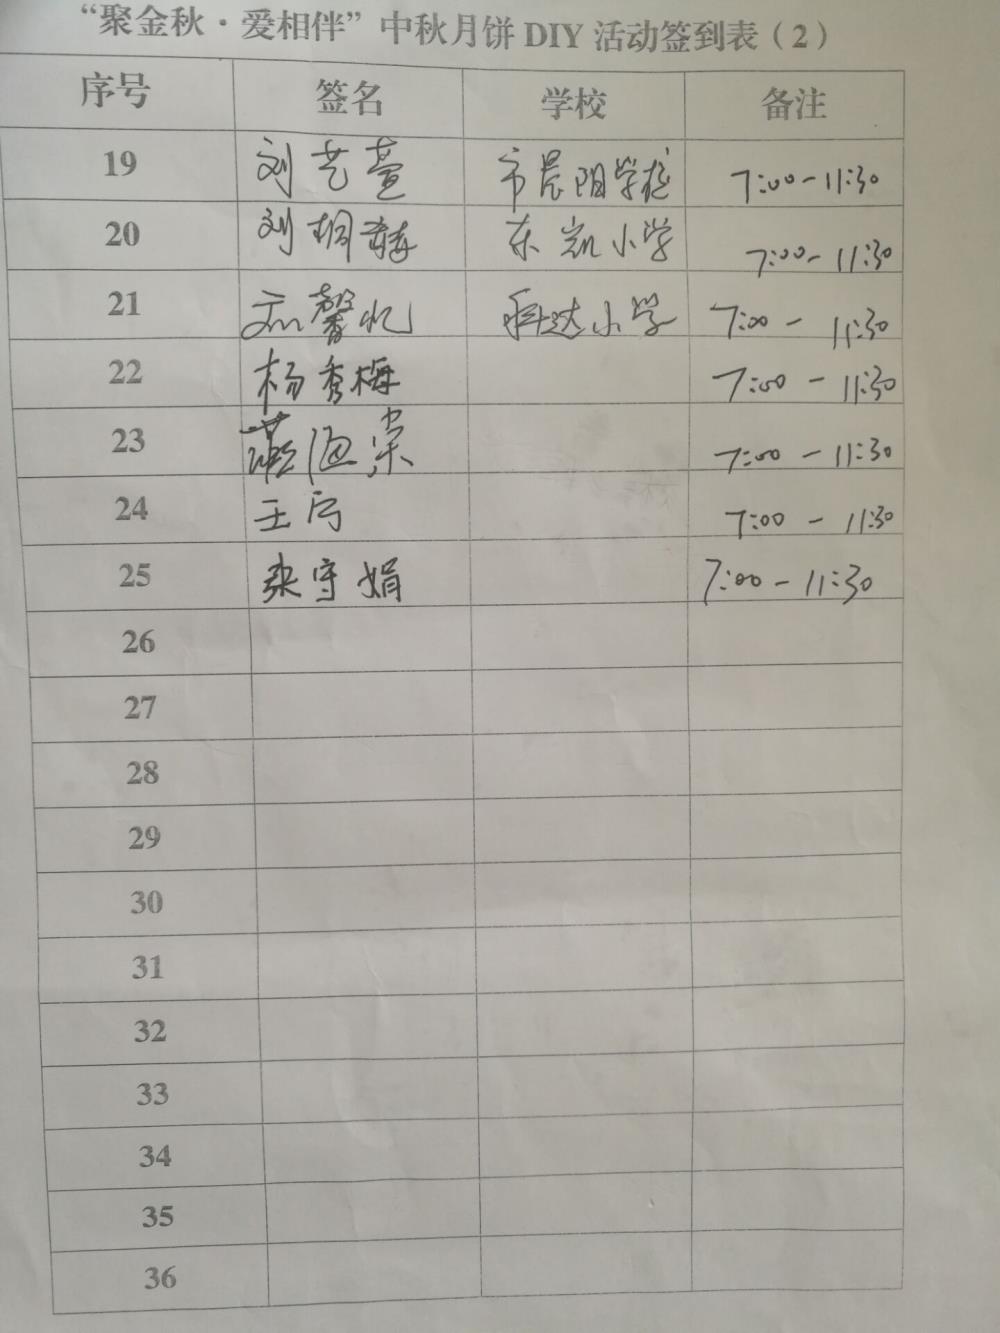 “聚金秋·爱相伴”中秋月饼DIY活动签到表（2）
序号 签名 学校 备注
19 刘艺萱 市晨阳学校 7:00-11:30
20 刘桐 东凯小学 7:00-11:30
21 刘馨忆 科达小学 7:00-11:30
22 杨秀梅 7:00-11:30
23 7:00-11:30
24 王 7:00-11:30
25 守娟 7:00-11:30
26
27
28
29
30
31
32
33
34
35
36